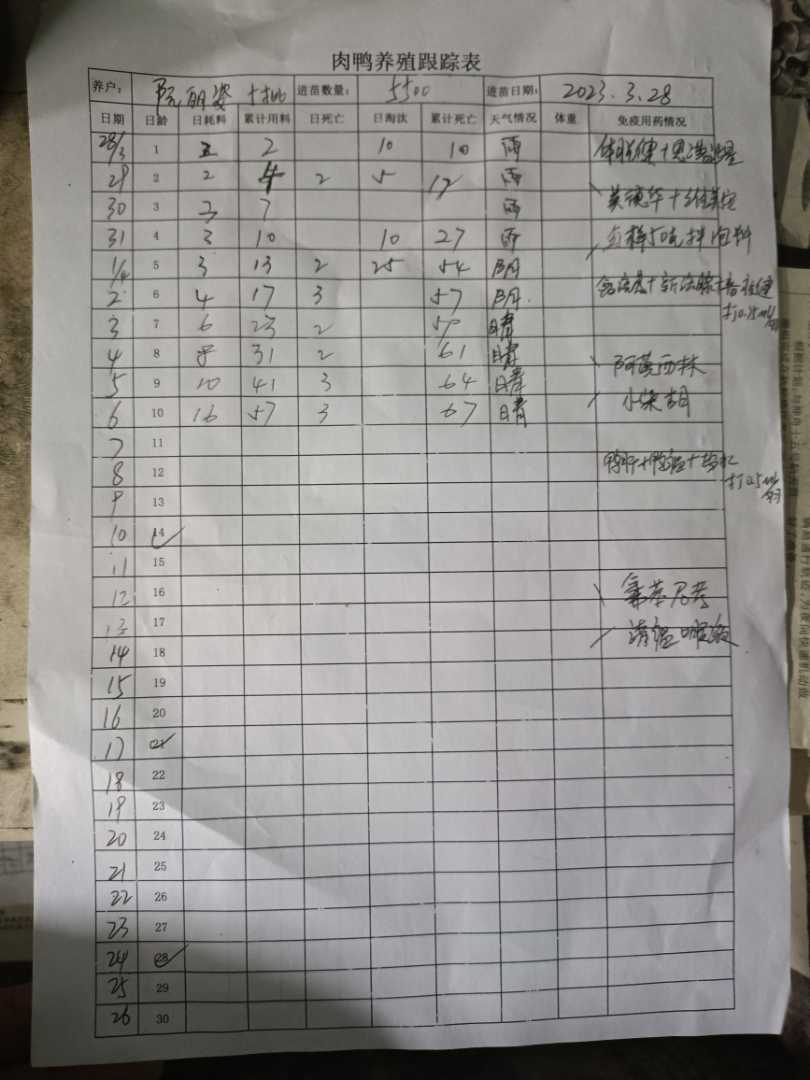 肉鸭养殖跟踪表
养户： 阮丽姿 进苗数量： 5500 进苗日期： 2023.3.28
日期 日龄 日耗料 累计用料 日死亡 日淘汰 累计死亡 天气情况 体重 免疫用药情况
28/3 1 2 10 10 雨
29 2 2 4 2 5 17 雨
30 3 3 7 雨
31 4 3 10 10 27 雨
1/4 5 3 13 2 25 54 阴
2 6 4 17 3 57 阴
打0.25ml/羽
3 7 6 23 2 59 晴
4 8 8 31 2 61 晴 阿莫西林
5 9 10 41 3 64 晴 小柴胡
6 10 16 57 3 67 晴
7 11
8 12 打0.5ml/羽
9 13
10 14
11 15
12 16 氟苯尼考
13 17 清瘟
14 18
15 19
16 20
17 21
18 22
19 23
20 24
21 25
22 26
23 27
24 28
25 29
26 30